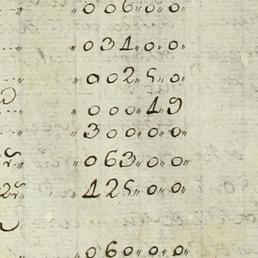 " 006 " 0 " 0 "
" 031 " 0 " 0 "
" 002 " 5 " 0 "
" 000 " 1 " 9
" 3 0 " 0 " 0 "
" 063 " 0 " 0 "
" 125 " 0 " 0 "
" 060 " 0 " 0 "